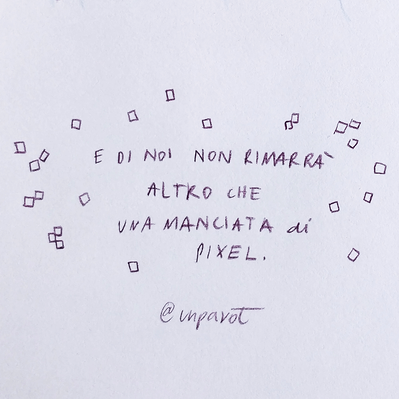 E DI NOI NON RIMARRÀ
ALTRO CHE
UNA MANCIATA di
PIXEL.
@unpavot